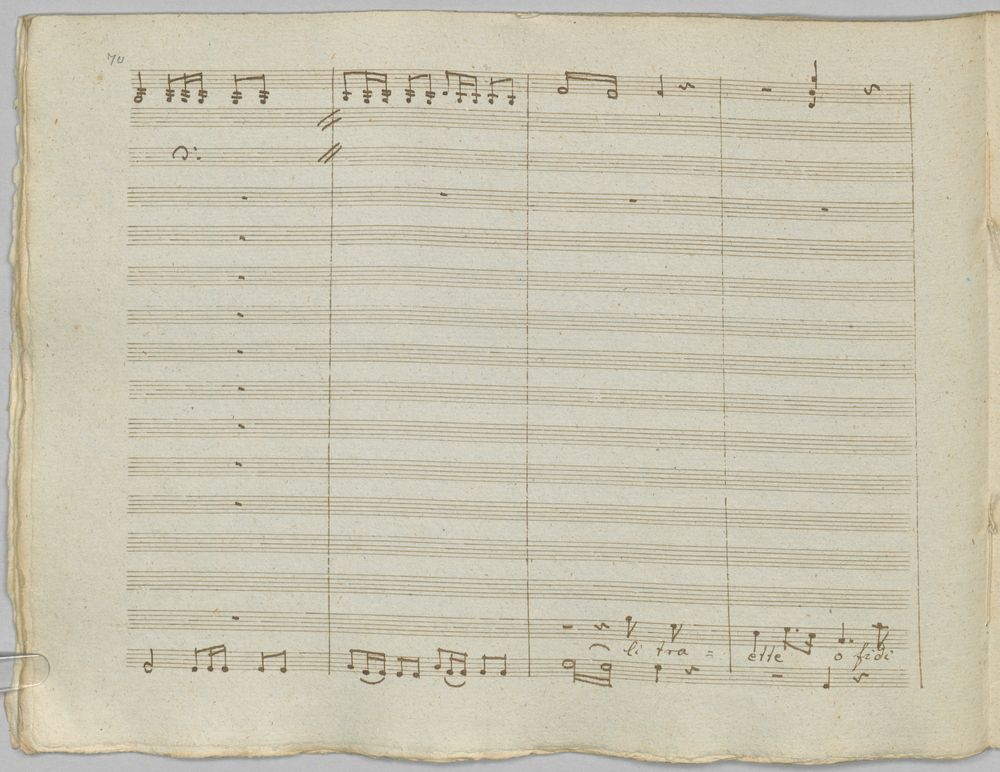 70
li tra = ette o fidi